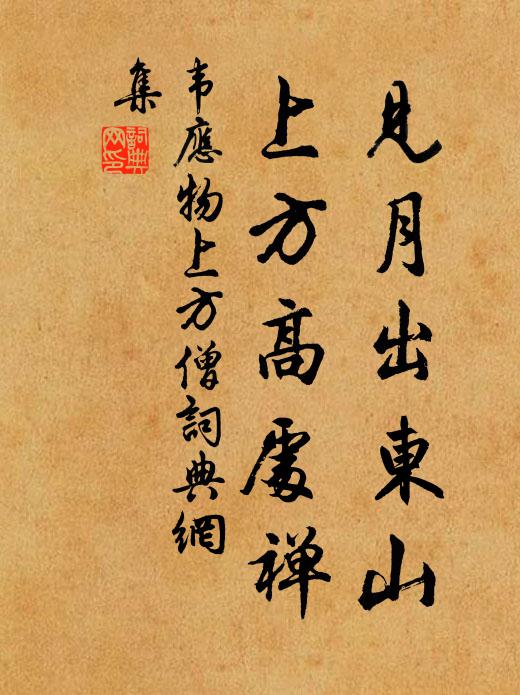 見月出東山
上方高處禅
韦應物上方僧詞典網
集
詞典網印